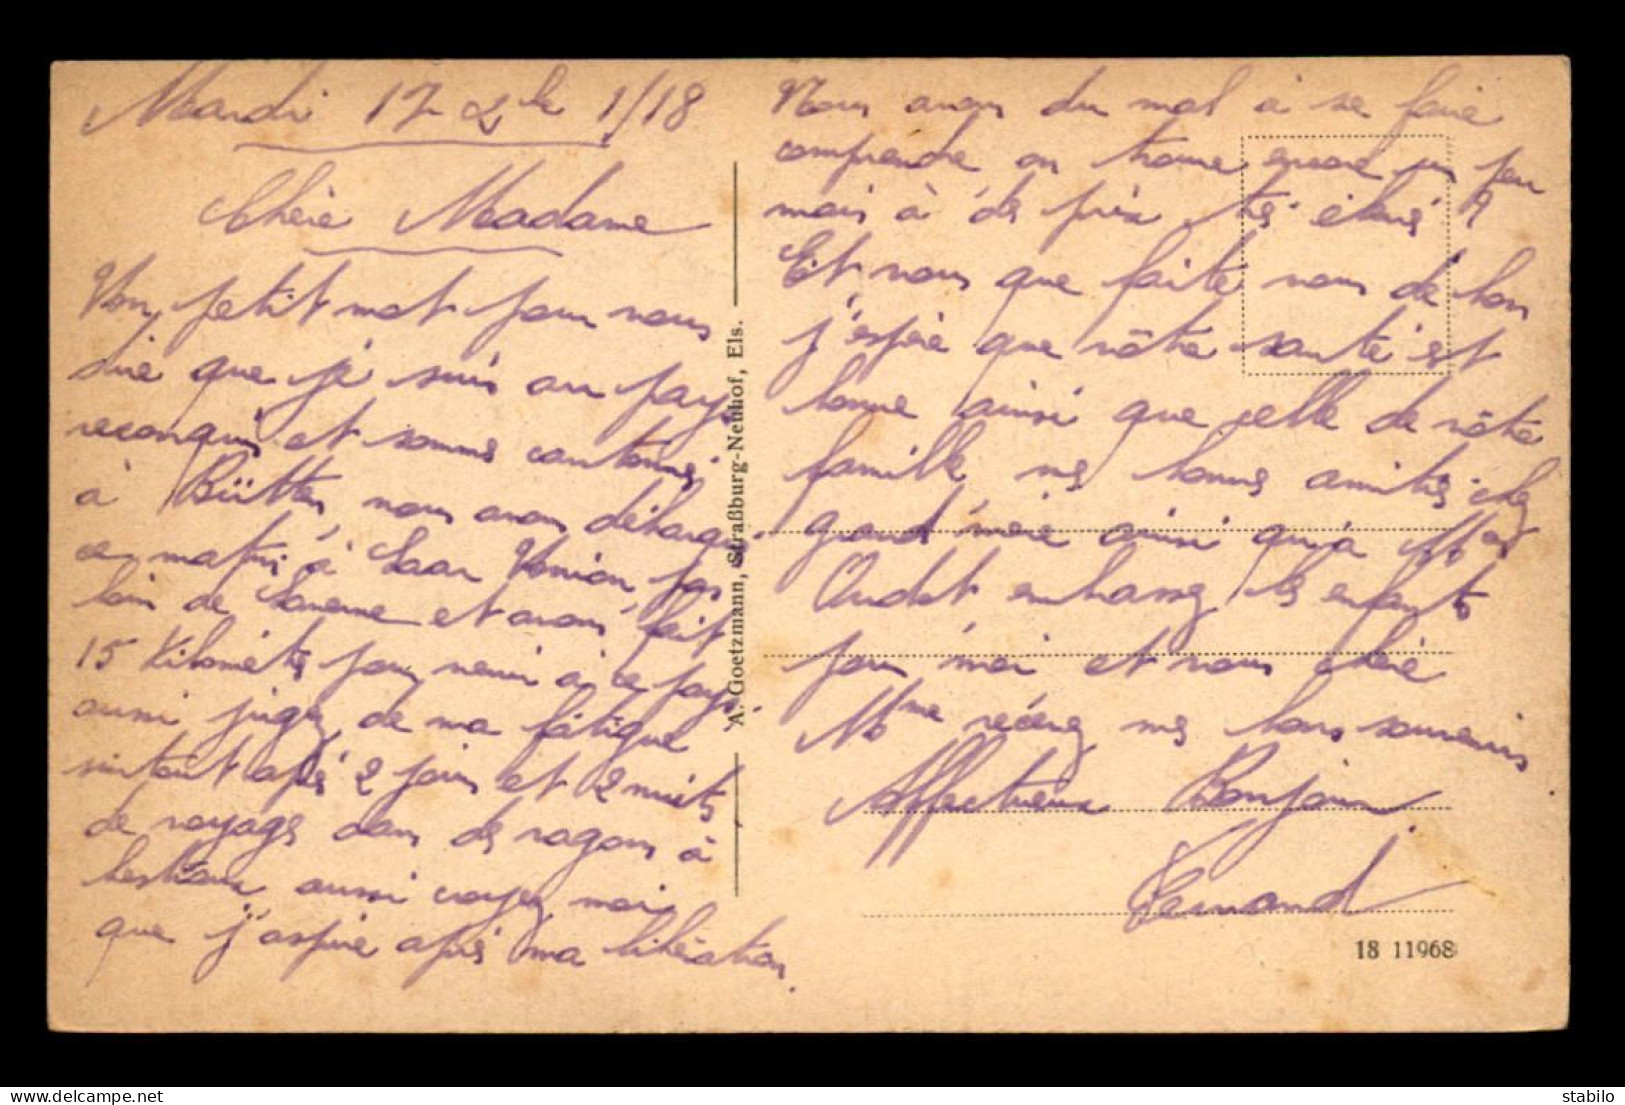 Mardi 17 Xbre 1918
Chère Madame
Un petit mot pour vous
dire que je suis au pays
reconquis et sommes cantonnés
à Bütten, nous avons débarqué
ce matin à Saar Union pas
loin de Saverne et avons fait
15 Kilomètres pour venir à ce pays.
aussi jugez de ma fatigue
surtout après 2 jours et 2 nuits
de voyage dans des vagons à
bestiaux aussi croyez moi
que j'aspire après ma libération.
Nous avons du mal à se faire
comprendre on trouve encore un peu
mais à des prix très élevés
Et vous que faite vous de bon
j'espère que vôtre santé est
bonne ainsi que celle de vôtre
famille mes bonnes amitiés chez
grand'mère ainsi qu'à
Oudot embrassez les enfants
pour moi et vous chère
Mme recevez mes bons souvenirs
Affectueux Bonjour.
Fernand
A. Goetzmann, Straßburg-Neuhof, Els.
18 11968
stabilo
www.delcampe.net